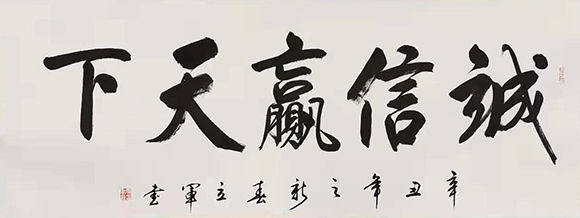 誠信贏天下
辛丑年之新春立軍書